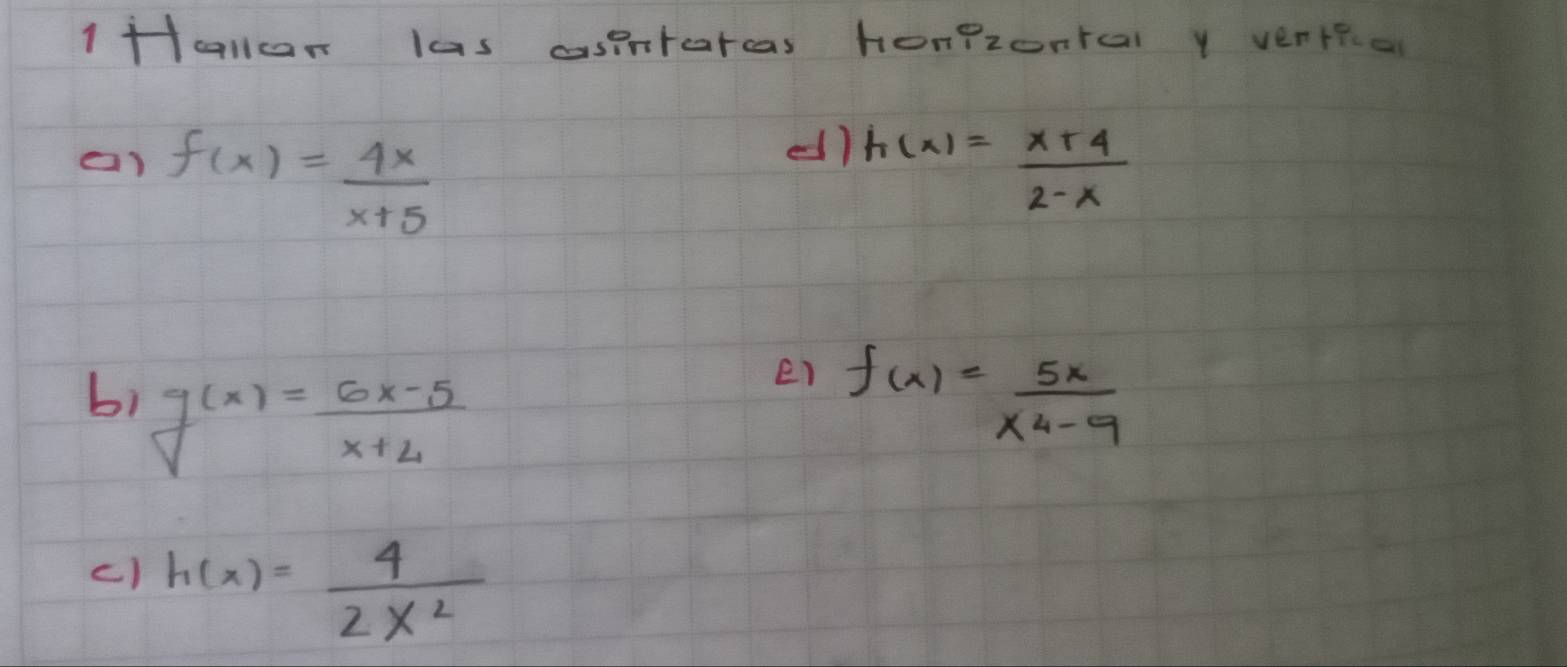 1 Hallar las asintotas horizontal y vertical
a) f(x) = 4x / x+5
d) h(x) = x+4 / 2-x
b) g(x) = 6x-5 / x+4
e) f(x) = 5x / x4-9
c) h(x) = 4 / 2x²